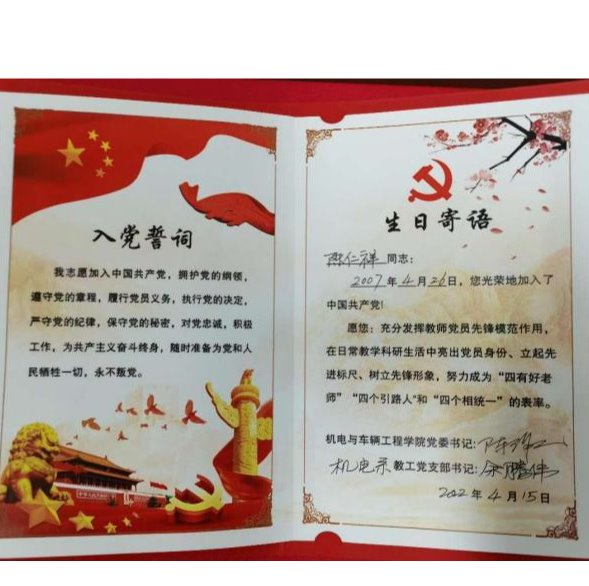 入党誓词
我志愿加入中国共产党，拥护党的纲领，
遵守党的章程，履行党员义务，执行党的决定，
严守党的纪律，保守党的秘密，对党忠诚，积极
工作，为共产主义奋斗终身，随时准备为党和人
民牺牲一切，永不叛党。
生日寄语
仁祥同志：
2007年4月26日，您光荣地加入了
中国共产党！
愿您：充分发挥教师党员先锋模范作用，
在日常教学科研生活中亮出党员身份、立起先
进标尺、树立先锋形象，努力成为“四有好老
师”“四个引路人”和“四个相统一”的表率。
机电与车辆工程学院党委书记：
机电系教工党支部书记：
2022年4月15日